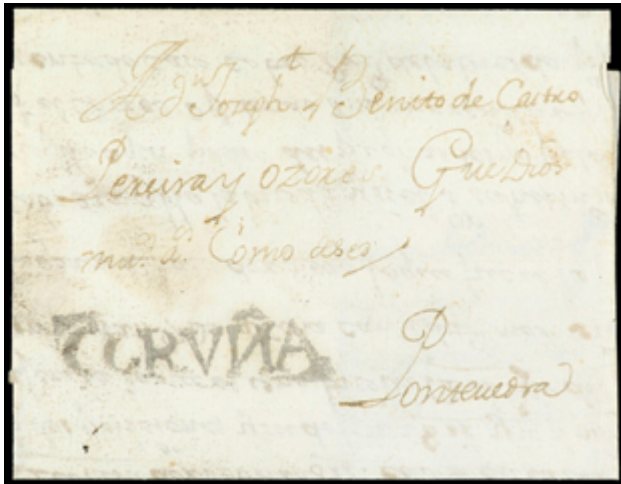 A dn Joseph Benito de Castro
Pereira y ozores Que Dios
ms. as. Como deseo
CORVÑA
Pontevedra